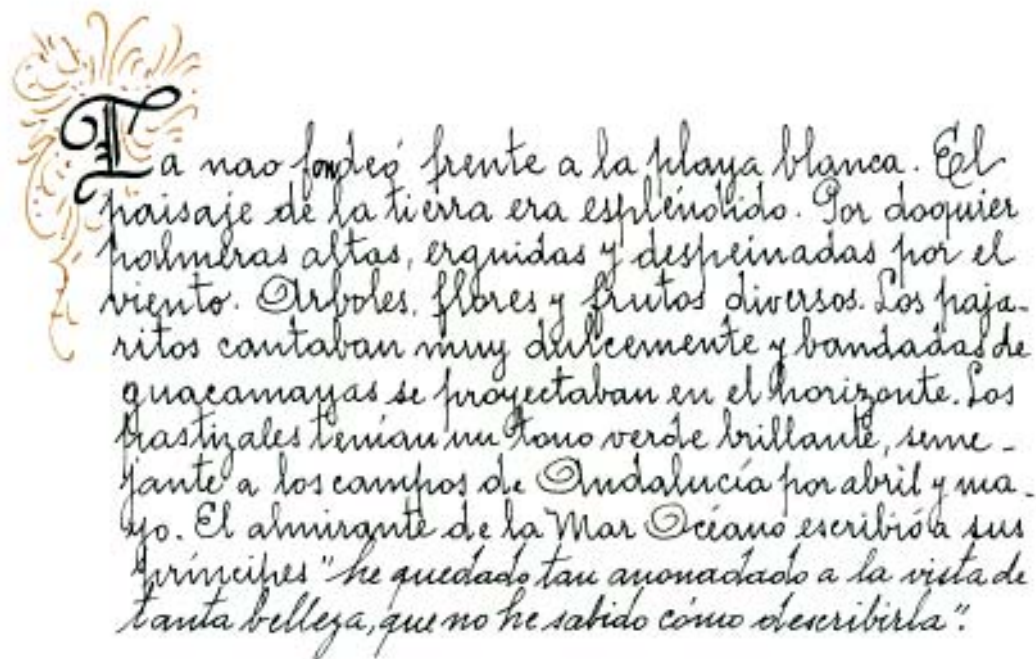 La nao fondeó frente a la playa blanca. El
paisaje de la tierra era espléndido. Por doquier
palmeras altas, erguidas y despeinadas por el
viento. Arboles, flores y frutos diversos. Los paja-
ritos cantaban muy dulcemente y bandadas de
guacamayas se proyectaban en el horizonte. Los
pastizales tenían un tono verde brillante, seme-
jante a los campos de Andalucía por abril y ma-
yo. El almirante de la Mar Océano escribió a sus
príncipes "he quedado tan anonadado a la vista de
tanta belleza, que no he sabido cómo describirla".